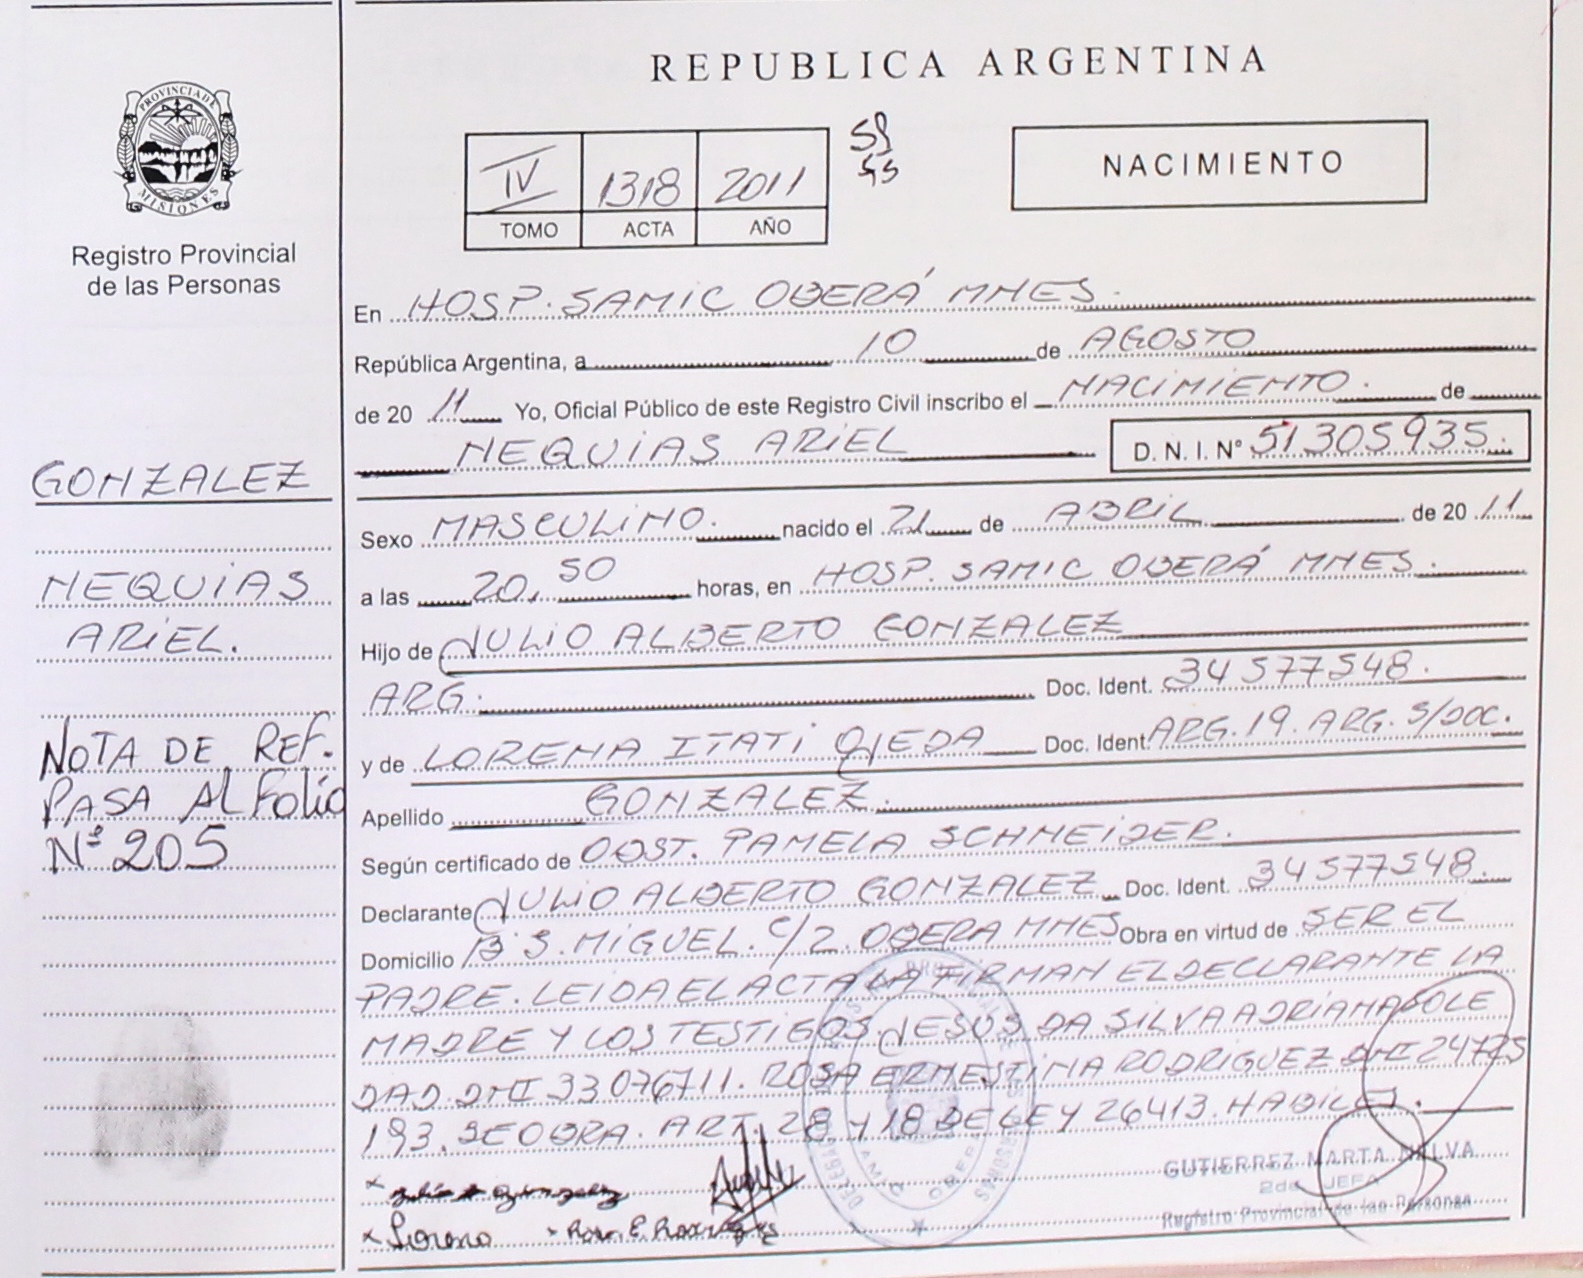 REPUBLICA ARGENTINA
PROVINCIA DE
MISIONES
Registro Provincial
de las Personas
IV 1318 2011
TOMO ACTA AÑO
NACIMIENTO
En HOSP. SAMIC OBERÁ MNES.
República Argentina, a 10 de AGOSTO
de 20 11 Yo, Oficial Público de este Registro Civil inscribo el NACIMIENTO. de
NEQUIAS ARIEL D. N. I. Nº 51305935.
GONZALEZ
NEQUIAS
ARIEL.
NOTA DE REF.
PASA AL FOLIO
Nº 205
Sexo MASCULINO. nacido el 21 de ABRIL de 20 11
a las 20,50 horas, en HOSP. SAMIC OBERÁ MNES.
Hijo de JULIO ALBERTO GONZALEZ
ARG. Doc. Ident. 34577548.
y de LORENA ITATI OJEDA Doc. Ident. ARG. 19. ARG. S/DOC.
Apellido GONZALEZ.
Según certificado de OBST. PAMELA SCHNEIDER.
Declarante JULIO ALBERTO GONZALEZ Doc. Ident. 34577548.
Domicilio Bº S. MIGUEL. C/2. OBERA MNES Obra en virtud de SER EL
PADRE. LEIDA EL ACTA LA FIRMAN EL DECLARANTE LA
MADRE Y LOS TESTIGOS. JESUS DA SILVA ADRIANA SOLE
DAD. DNI 33076711. ROSA ERNESTINA RODRIGUEZ DNI 24725
193. SE OBRA. ART. 28 Y 18 DE LEY 26413. HABILES.
GUTIERREZ MARTA NELVA
2da. JEFA
Registro Provincial de las Personas
Julio A Gonzalez
Lorena Rosa E. Rodriguez